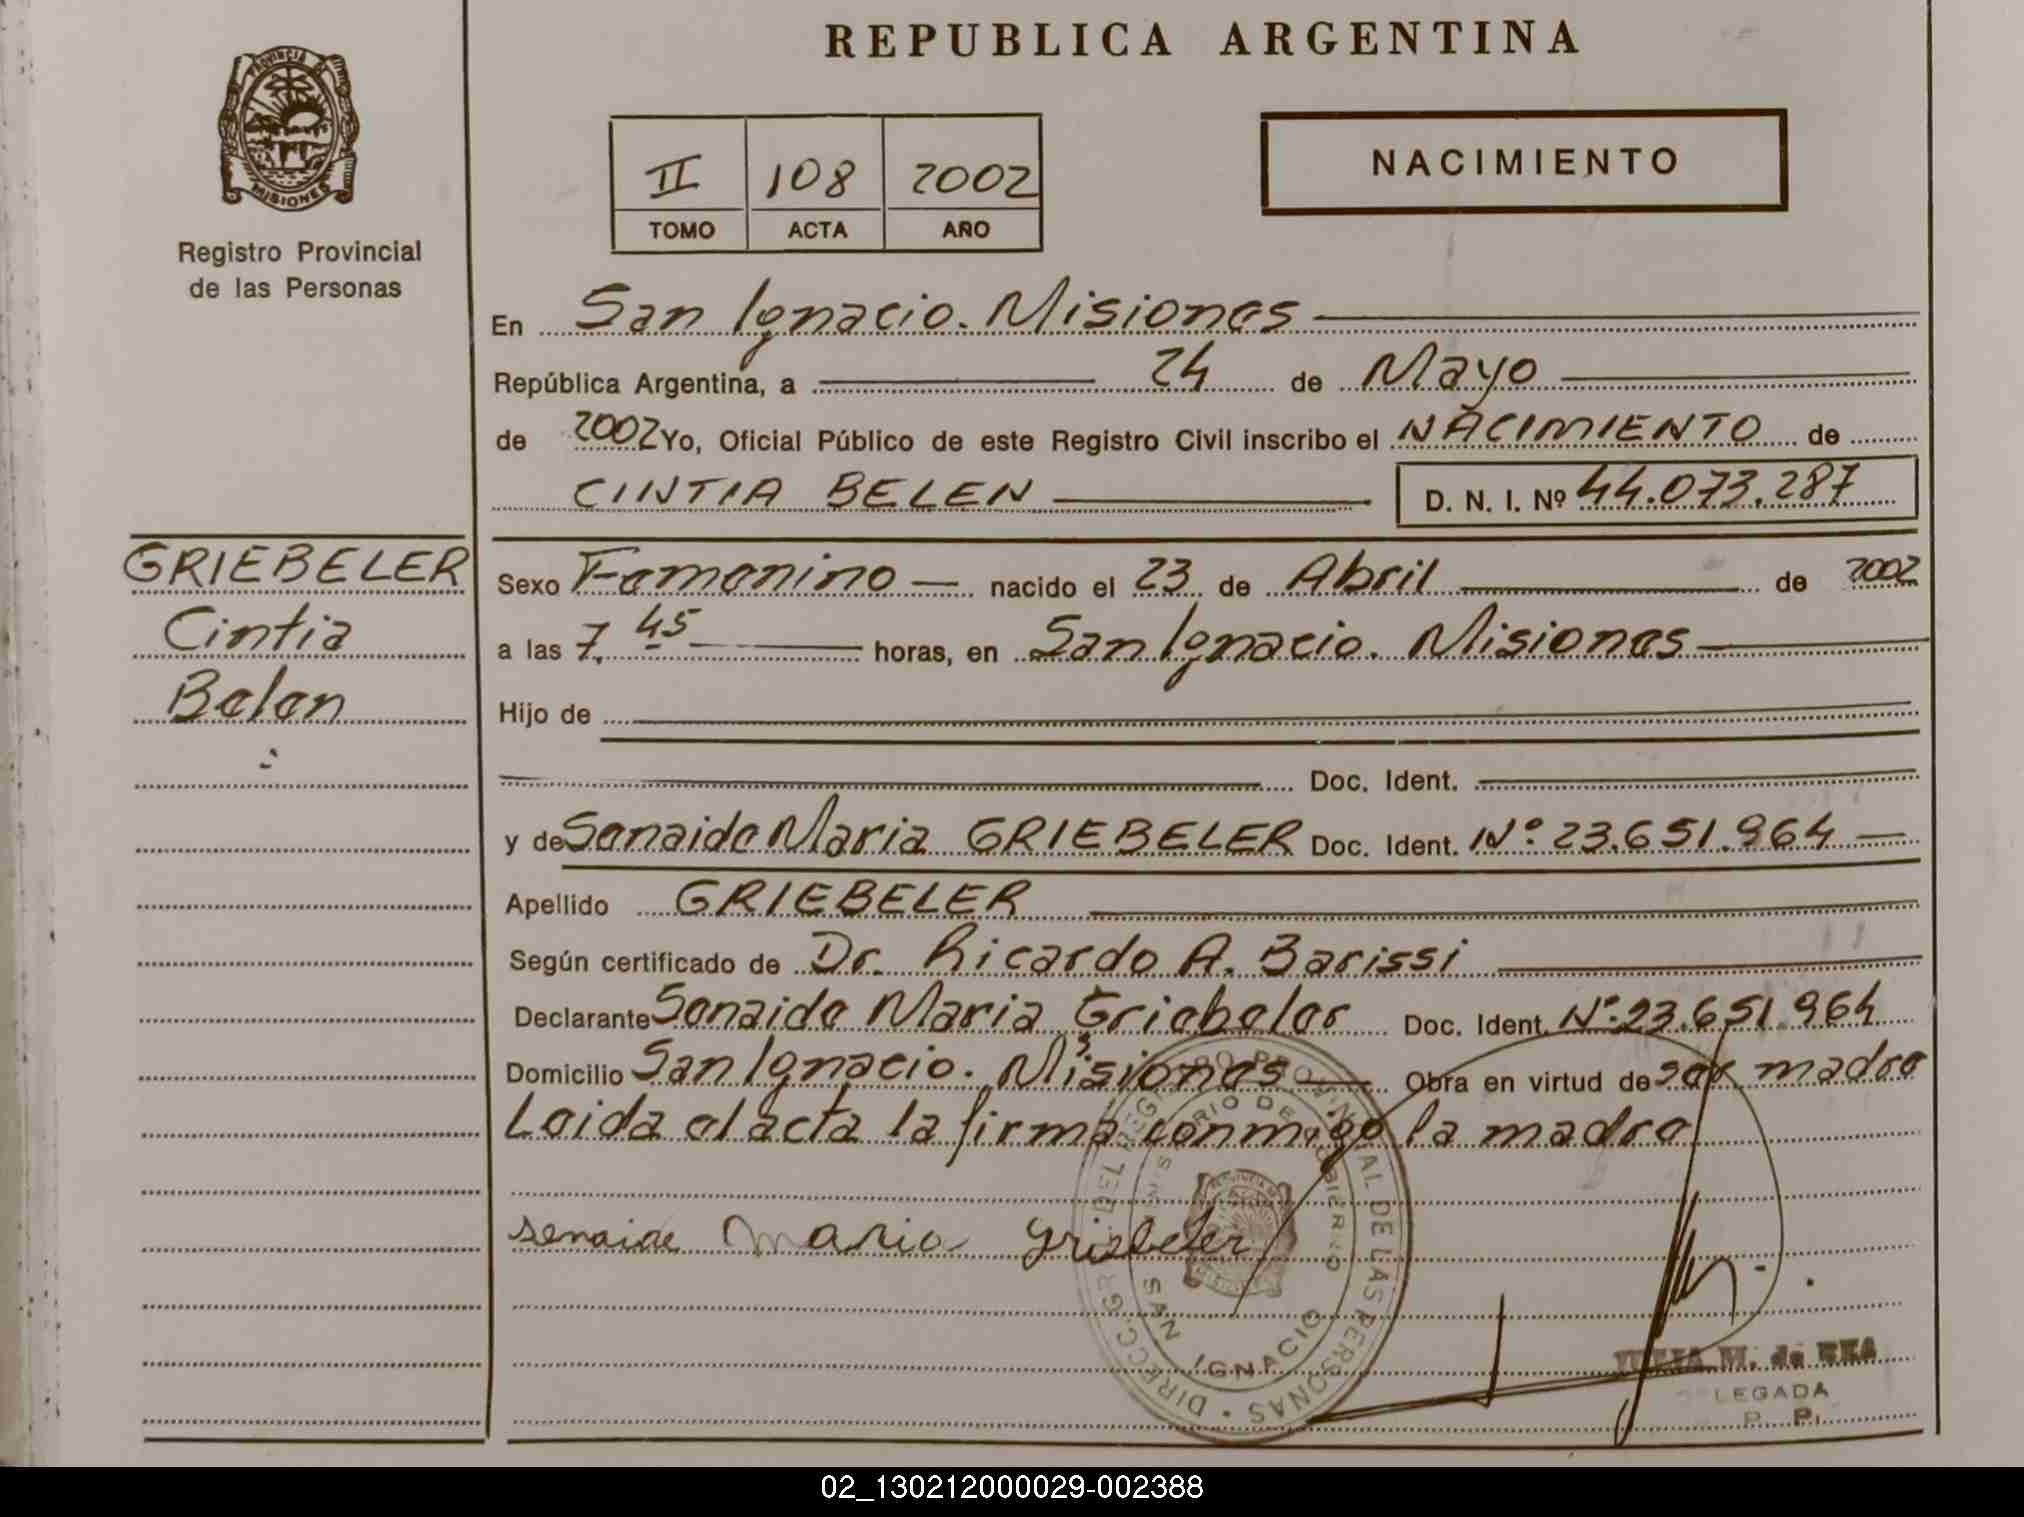 REPUBLICA ARGENTINA
PROVINCIA DE
MISIONES
Registro Provincial
de las Personas
II 108 2002
TOMO ACTA AÑO
NACIMIENTO
En San Ignacio. Misiones
República Argentina, a 24 de Mayo
de 2002 Yo, Oficial Público de este Registro Civil inscribo el NACIMIENTO de
CINTIA BELEN D. N. I. Nº 44.073.287
GRIEBELER
Cintia
Belen
Sexo Femenino nacido el 23 de Abril de 2002
a las 7.45 horas, en San Ignacio. Misiones
Hijo de
Doc. Ident.
y de Senaide Maria GRIEBELER Doc. Ident. Nº 23.651.964
Apellido GRIEBELER
Según certificado de Dr. Ricardo A. Barissi
Declarante Senaide Maria Griebeler Doc. Ident. Nº 23.651.964
Domicilio San Ignacio. Misiones Obra en virtud de ser madre
Leida el acta la firma conmigo la madre
senaide maria griebeler
DIRECC. GR. DEL REGISTRO PROVINCIAL DE LAS PERSONAS
MINISTERIO DE GOBIERNO
SAN IGNACIO
M. de REA
LEGADA
P. P.
02_130212000029-002388